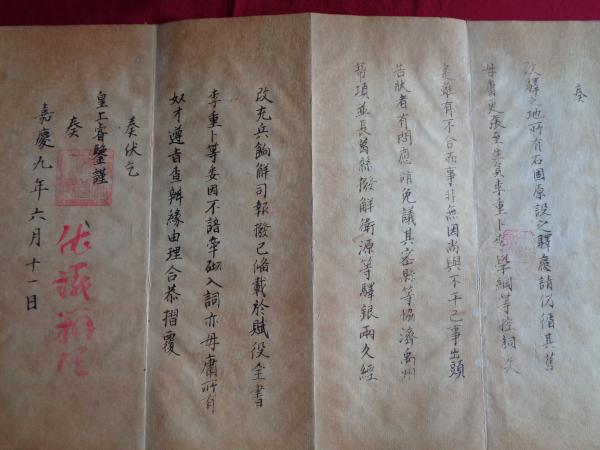 奏
改驛之地所有石固原設之驛應請仍循其舊
毋庸更張至生員李重卜等
定雖有不合而事非無因尚與不平已事出頭
告狀者有間應請免議其密縣等協濟禹州
幫項並長葛縣撥解衛源等驛銀兩久經
改充兵餉解司報撥已備載於賦役全書
李重卜等委因不諳牽砌入詞亦毋庸所有
奴才遵旨查辦緣由理合恭摺覆
奏伏乞
皇上睿鑒謹
奏
嘉慶九年六月十一日
依議